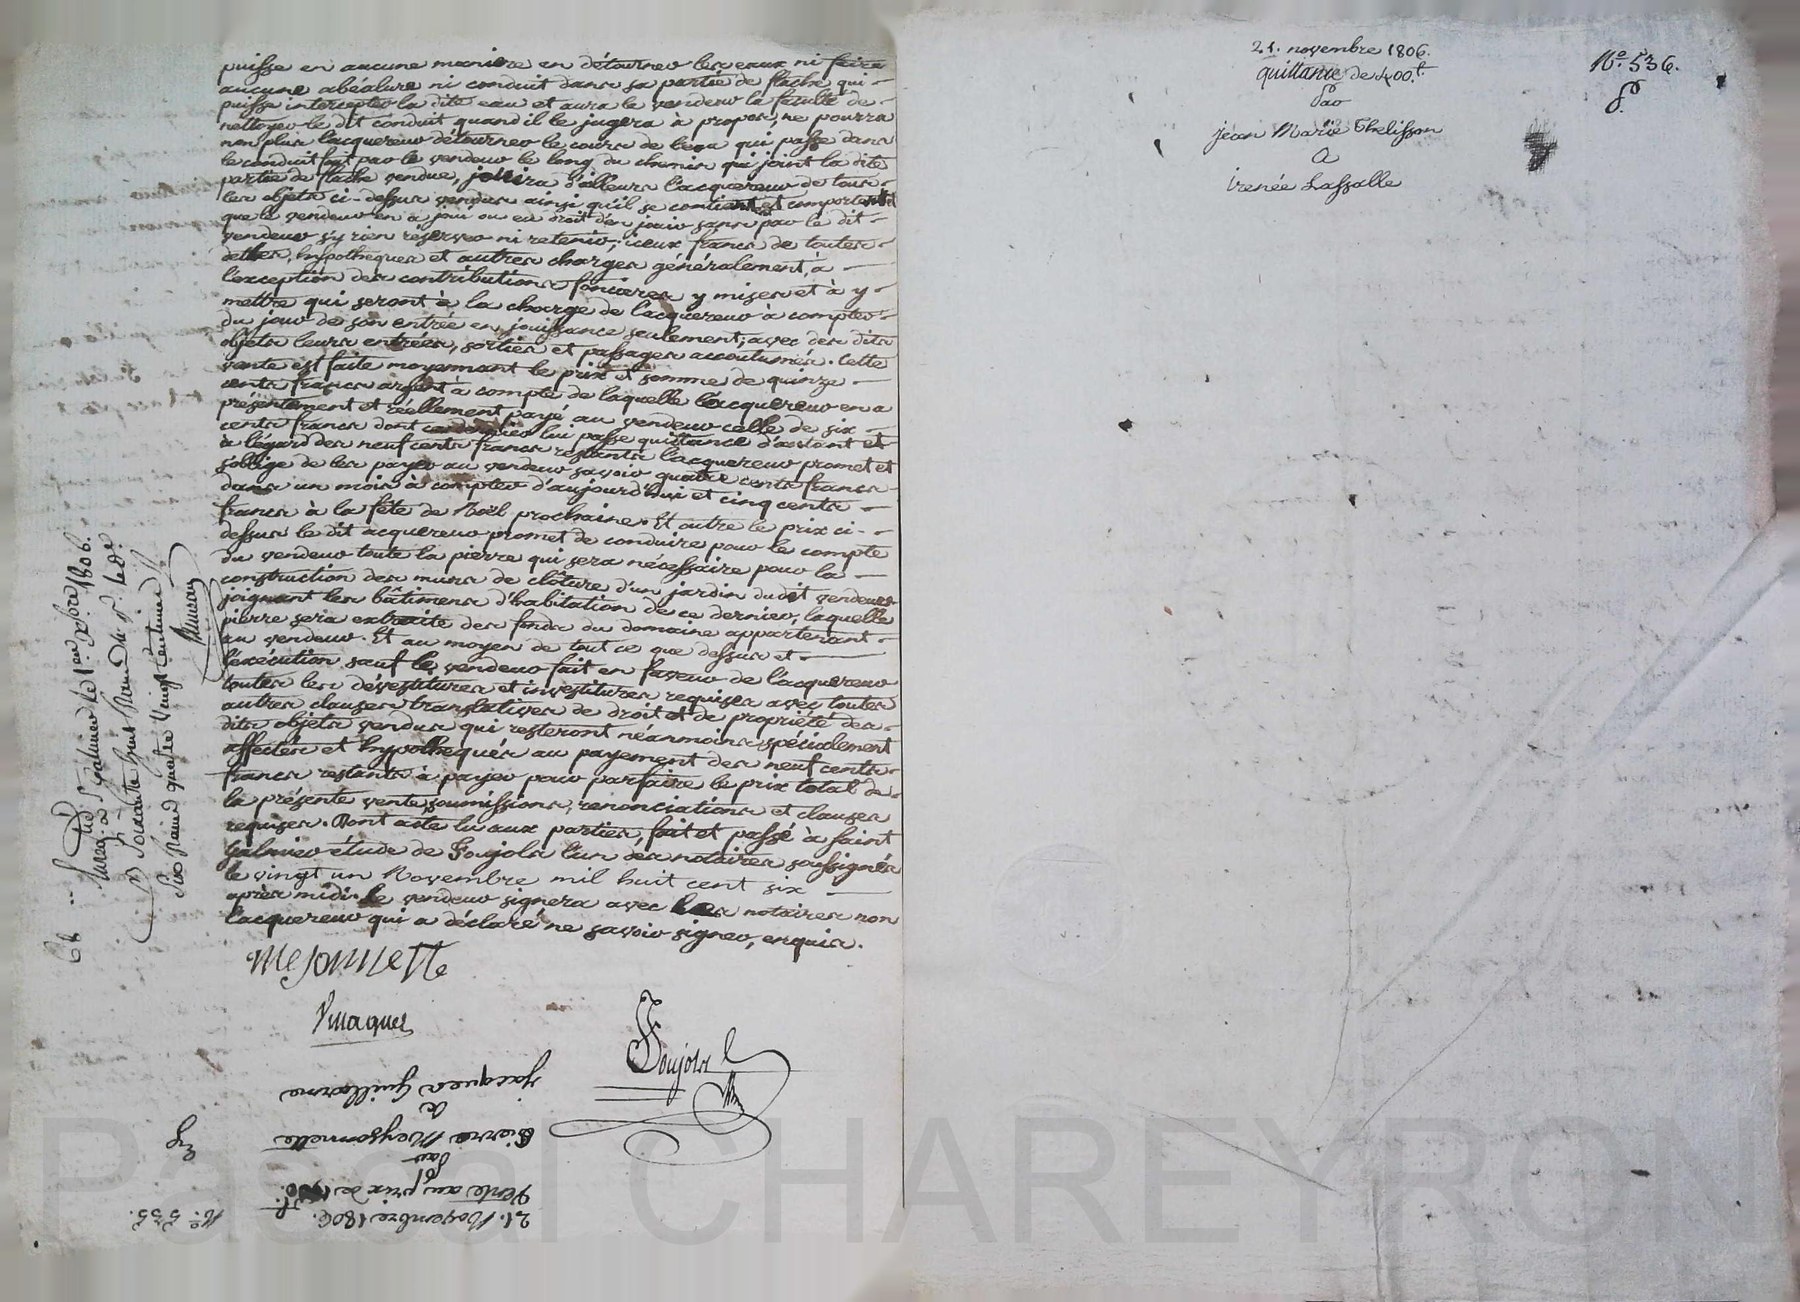 puisse en aucune maniere en détourner les eaux ni faire
aucune abéalure ni conduit dans sa partie de flache qui
puisse intercepter la dite eau et aura le vendeur la faculté de
nettoyer le dit conduit quand il le jugera à propos, ne pourra
non plus l'acquereur détourner le cours de l'eau qui passe dans
le conduit fait par le vendeur le long du chemin qui joint la dite
partie de flache vendue, jouira d'ailleurs l'acquereur de tous
les objets ci-dessus vendus ainsi qu'il se contient et comporte
que le vendeur en a joui ou eu droit d'en jouir sans par le dit
vendeur s'y rien réserver ni retenir; iceux francs de toutes
dettes, hypotheques et autres charges généralement, à
l'exception des contributions foncieres y mises et à y
mettre qui seront à la charge de l'acquereur à compter
du jour de son entrée en jouissance seulement; avec des dits
objets leurs entrées, sorties et passages accoutumés. Cette
vente est faite moyennant le prix et somme de quinze
cents francs argent à compte de laquelle l'acquereur en a
présentement et réellement payé au vendeur celle de six
cents francs dont ce dernier lui passe quittance d'autant et
à l'égard des neuf cents francs restants l'acquereur promet et
s'oblige de les payer au vendeur savoir quatre cents francs
dans un mois à compter d'aujourd'hui et cinq cents
francs à la fête de Noël prochaine. Et outre le prix ci-
dessus le dit acquereur promet de conduire pour le compte
du vendeur toute la pierre qui sera nécessaire pour la
construction des murs de clôture d'un jardin dudit vendeur
joignant les bâtimens d'habitation de ce dernier, laquelle
pierre sera extraite des fonds du domaine appartenant
au vendeur. Et au moyen de tout ce que dessus et
l'exécution sauf le vendeur fait en faveur de l'acquereur
toutes les dévestitures et investitures requises avec toutes
autres clauses translatives de droit et de propriété des
dits objets vendus qui resteront néanmoins spécialement
affectés et hypothequés au payement des neuf cents
francs restants à payer pour parfaire le prix total de
la présente vente, soumissions, renonciations et clauses
requises. Dont acte lu aux parties, fait et passé à saint
galmier étude de Foujols l'un des notaires soussignés
le vingt un Novembre mil huit cent six
après midi. le vendeur signera avec les notaires non
l'acquereur qui a déclaré ne savoir signer, enquis.
Mesonnette
Foujols
21. Novembre 1806.
N.º 535.
Vente au prix de
par
Pierre Meysonnette
à
Jacques Guillorme
21. novembre 1806.
quittance de 400.f
Par
jean Marie Thelisson
A
irenée Lassalle
N.º 536.
Pascal CHAREYRON